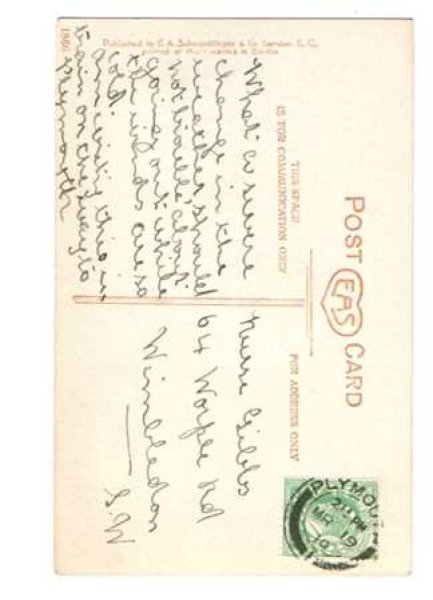 POST
EAS
CARD
THIS SPACE
IS FOR COMMUNICATION ONLY
FOR ADDRESS ONLY
What a severe
change in the
weather should
not trouble about
going out while
the winds are so
cold
am writing this in
train on my way to
Plymouth
Nurse Gibbs
64 Worple Rd
Wimbledon
S.W
PLYMOUT
MR 19
Published by E. A. Schwerdtfeger & Co London E. C.
printed at their works in Berlin